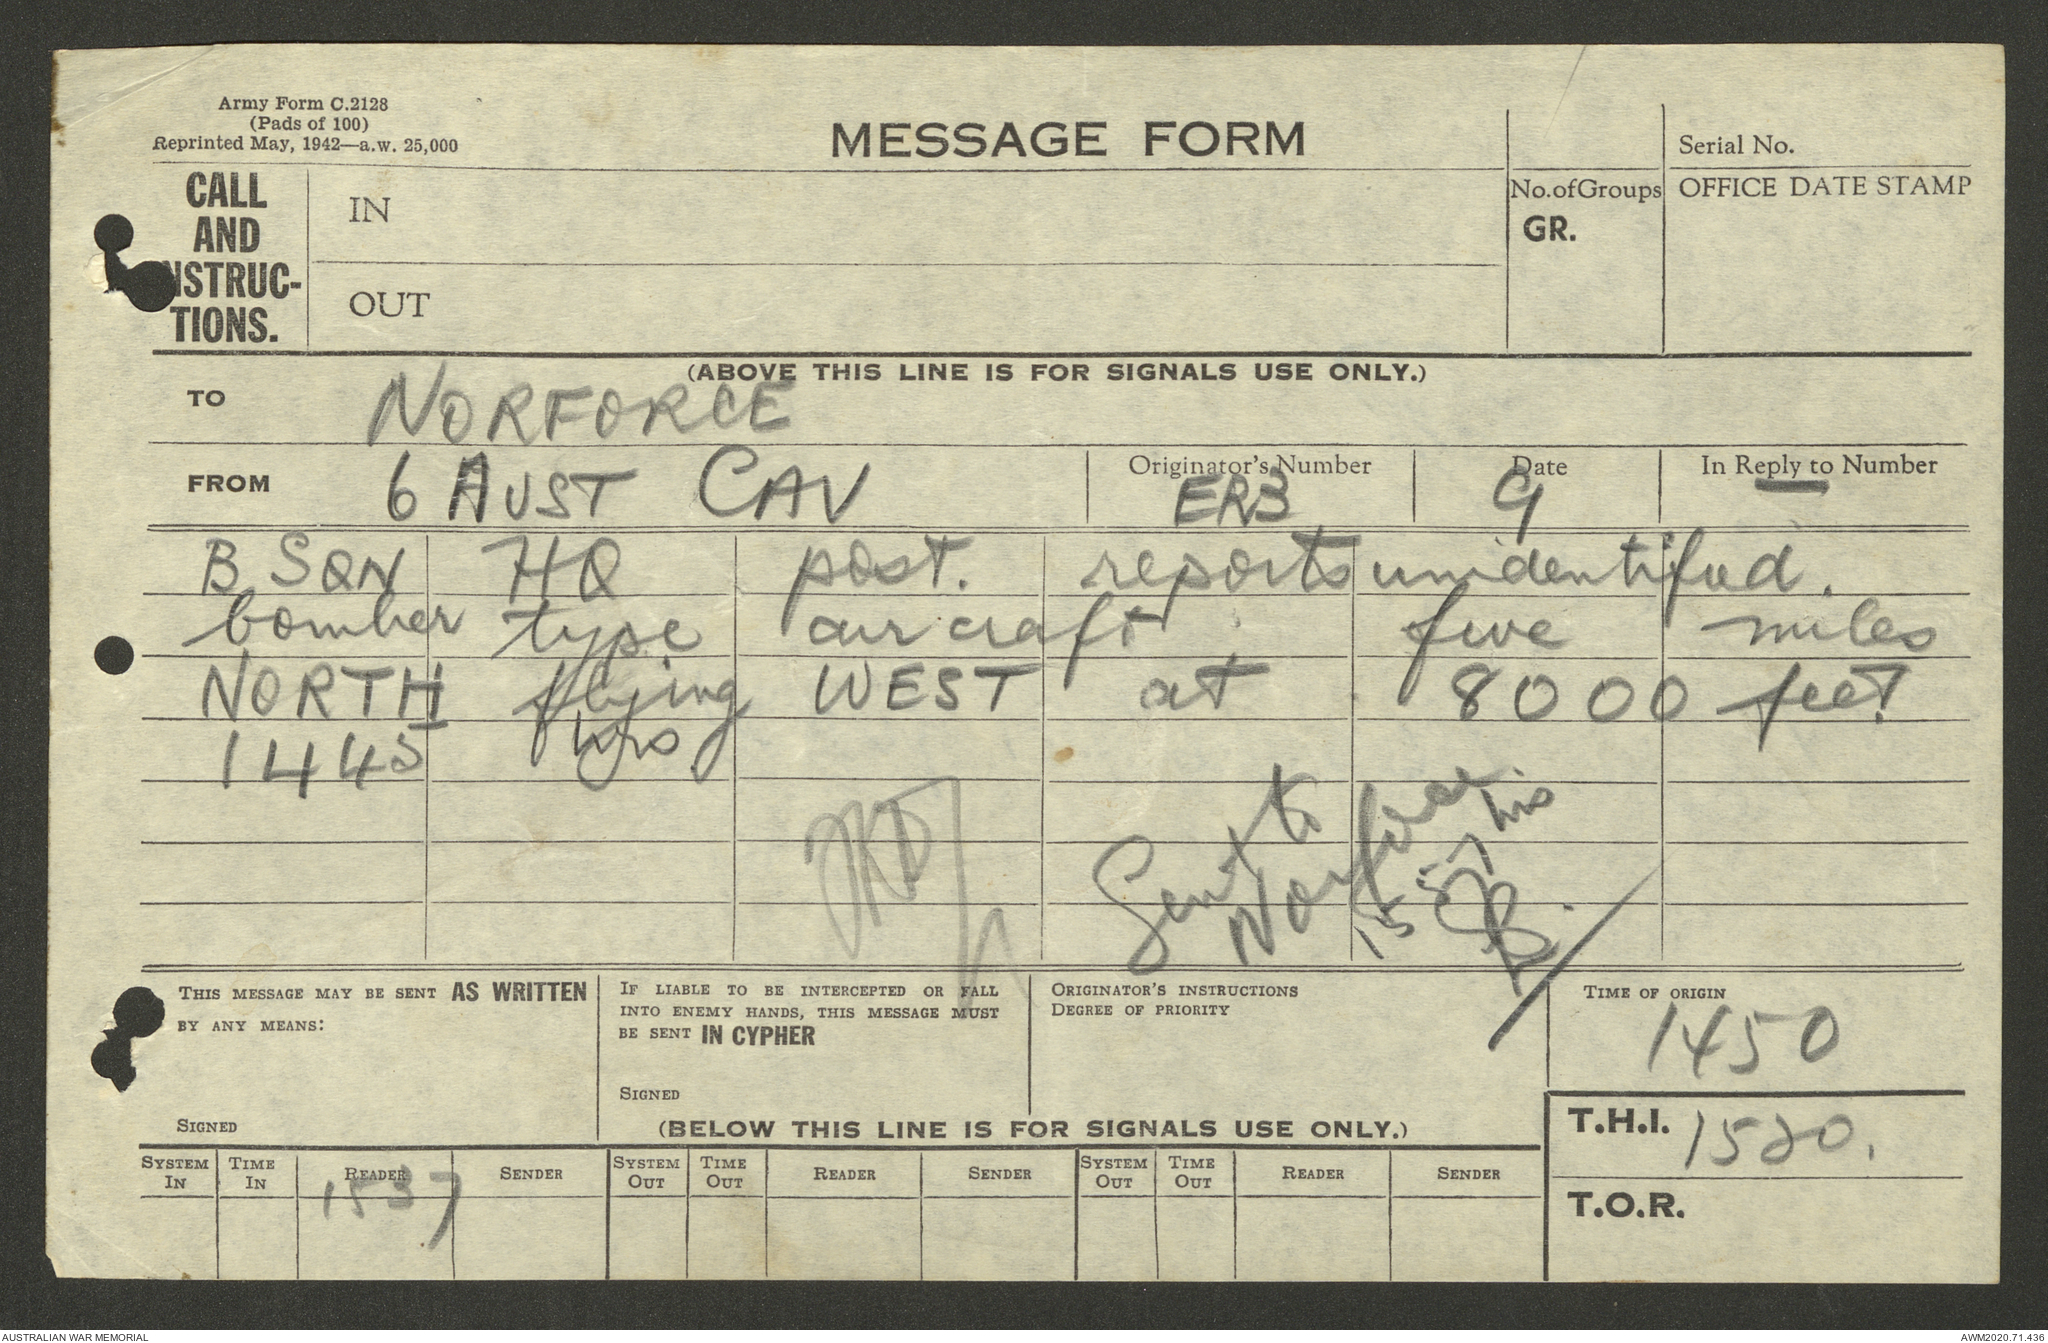 Army Form C.2128
(Pads of 100)
Reprinted May, 1942—a.w. 25,000
MESSAGE FORM
Serial No.
CALL
AND
INSTRUC-
TIONS.
IN
OUT
No. of Groups
GR.
OFFICE DATE STAMP
(ABOVE THIS LINE IS FOR SIGNALS USE ONLY.)
TO NORFORCE
FROM 6 AUST CAV
Originator's Number
ER3
Date
9
In Reply to Number
—
B SQN HQ post. reports unidentified.
bomber type aircraft five miles
NORTH flying WEST at 8000 feet
1445 hrs
Sent to
Norforce
1537 hrs
THIS MESSAGE MAY BE SENT AS WRITTEN
BY ANY MEANS:
SIGNED
IF LIABLE TO BE INTERCEPTED OR FALL
INTO ENEMY HANDS, THIS MESSAGE MUST
BE SENT IN CYPHER
SIGNED
ORIGINATOR'S INSTRUCTIONS
DEGREE OF PRIORITY
TIME OF ORIGIN
1450
(BELOW THIS LINE IS FOR SIGNALS USE ONLY.)
T.H.I. 1520.
T.O.R.
SYSTEM IN TIME IN READER SENDER SYSTEM OUT TIME OUT READER SENDER SYSTEM OUT TIME OUT READER SENDER
1537
AUSTRALIAN WAR MEMORIAL
AWM2020.71.436